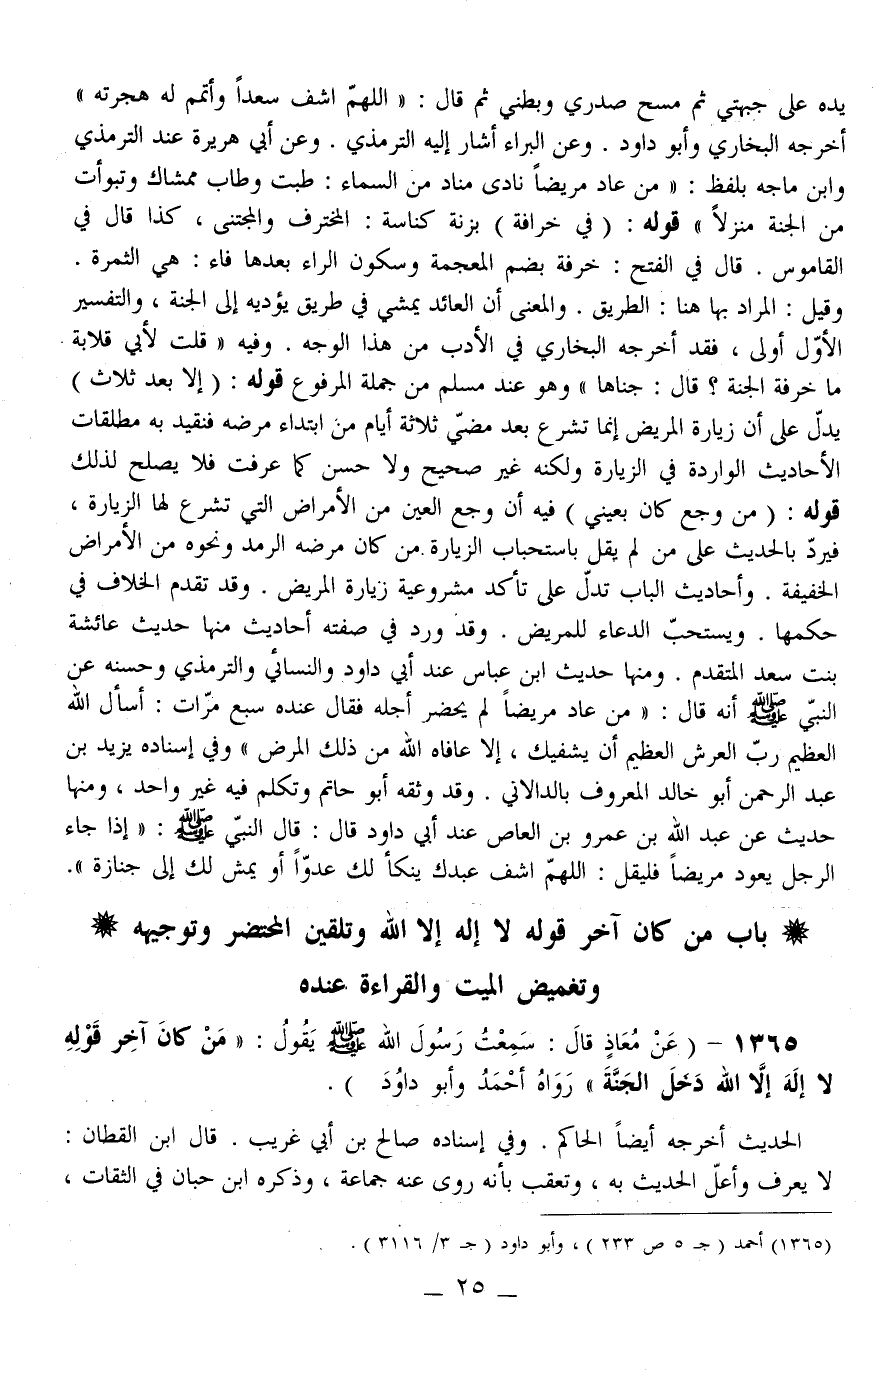 يده على جبهتي ثم مسح صدري وبطني ثم قال : « اللهمّ اشف سعداً وأتمم له هجرته »
أخرجه البخاري وأبو داود . وعن البراء أشار إليه الترمذي . وعن أبي هريرة عند الترمذي
وابن ماجه بلفظ : « من عاد مريضاً نادى مناد من السماء : طبت وطاب ممشاك وتبوأت
من الجنة منزلاً » قوله : ( في خرافة ) بزنة كناسة : المخترف والمجتنى ، كذا قال في
القاموس . قال في الفتح : خرفة بضم المعجمة وسكون الراء بعدها فاء : هي الثمرة .
وقيل : المراد بها هنا : الطريق . والمعنى أن العائد يمشي في طريق يؤديه إلى الجنة ، والتفسير
الأوّل أولى ، فقد أخرجه البخاري في الأدب من هذا الوجه . وفيه « قلت لأبي قلابة
ما خرفة الجنة ؟ قال : جناها » وهو عند مسلم من جملة المرفوع قوله : ( إلا بعد ثلاث )
يدلّ على أن زيارة المريض إنما تشرع بعد مضيّ ثلاثة أيام من ابتداء مرضه فنقيد به مطلقات
الأحاديث الواردة في الزيارة ولكنه غير صحيح ولا حسن كما عرفت فلا يصلح لذلك
قوله : ( من وجع كان بعيني ) فيه أن وجع العين من الأمراض التي تشرع لها الزيارة ،
فيردّ بالحديث على من لم يقل باستحباب الزيارة من كان مرضه الرمد ونحوه من الأمراض
الخفيفة . وأحاديث الباب تدلّ على تأكد مشروعية زيارة المريض . وقد تقدم الخلاف في
حكمها . ويستحبّ الدعاء للمريض . وقد ورد في صفته أحاديث منها حديث عائشة
بنت سعد المتقدم . ومنها حديث ابن عباس عند أبي داود والنسائي والترمذي وحسنه عن
النبيّ ﷺ أنه قال : « من عاد مريضاً لم يحضر أجله فقال عنده سبع مرّات : أسأل الله
العظيم ربّ العرش العظيم أن يشفيك ، إلا عافاه الله من ذلك المرض » وفي إسناده يزيد بن
عبد الرحمن أبو خالد المعروف بالدالاني . وقد وثقه أبو حاتم وتكلم فيه غير واحد ، ومنها
حديث عن عبد الله بن عمرو بن العاص عند أبي داود قال : قال النبيّ ﷺ : « إذا جاء
الرجل يعود مريضاً فليقل : اللهمّ اشف عبدك ينكأ لك عدوّاً أو يمش لك إلى جنازة ».
باب من كان آخر قوله لا إله إلا الله وتلقين المحتضر وتوجيهه
وتغميض الميت والقراءة عنده
١٣٦٥ – ( عَنْ مُعَاذٍ قالَ : سَمِعْتُ رَسُولَ الله ﷺ يَقُولُ : « مَنْ كانَ آخِر قَوْلِهِ
لا إلَهَ إلَّا الله دَخَلَ الجَنَّةَ » رَوَاهُ أحْمَدُ وأبو داوُدَ ) .
الحديث أخرجه أيضاً الحاكم . وفي إسناده صالح بن أبي غريب . قال ابن القطان :
لا يعرف وأعلّ الحديث به ، وتعقب بأنه روى عنه جماعة ، وذكره ابن حبان في الثقات ،
(١٣٦٥) أحمد ( جـ ٥ ص ٢٣٣ ) ، وأبو داود ( جـ ٣/ ٣١١٦ ) .
_ ٢٥ _